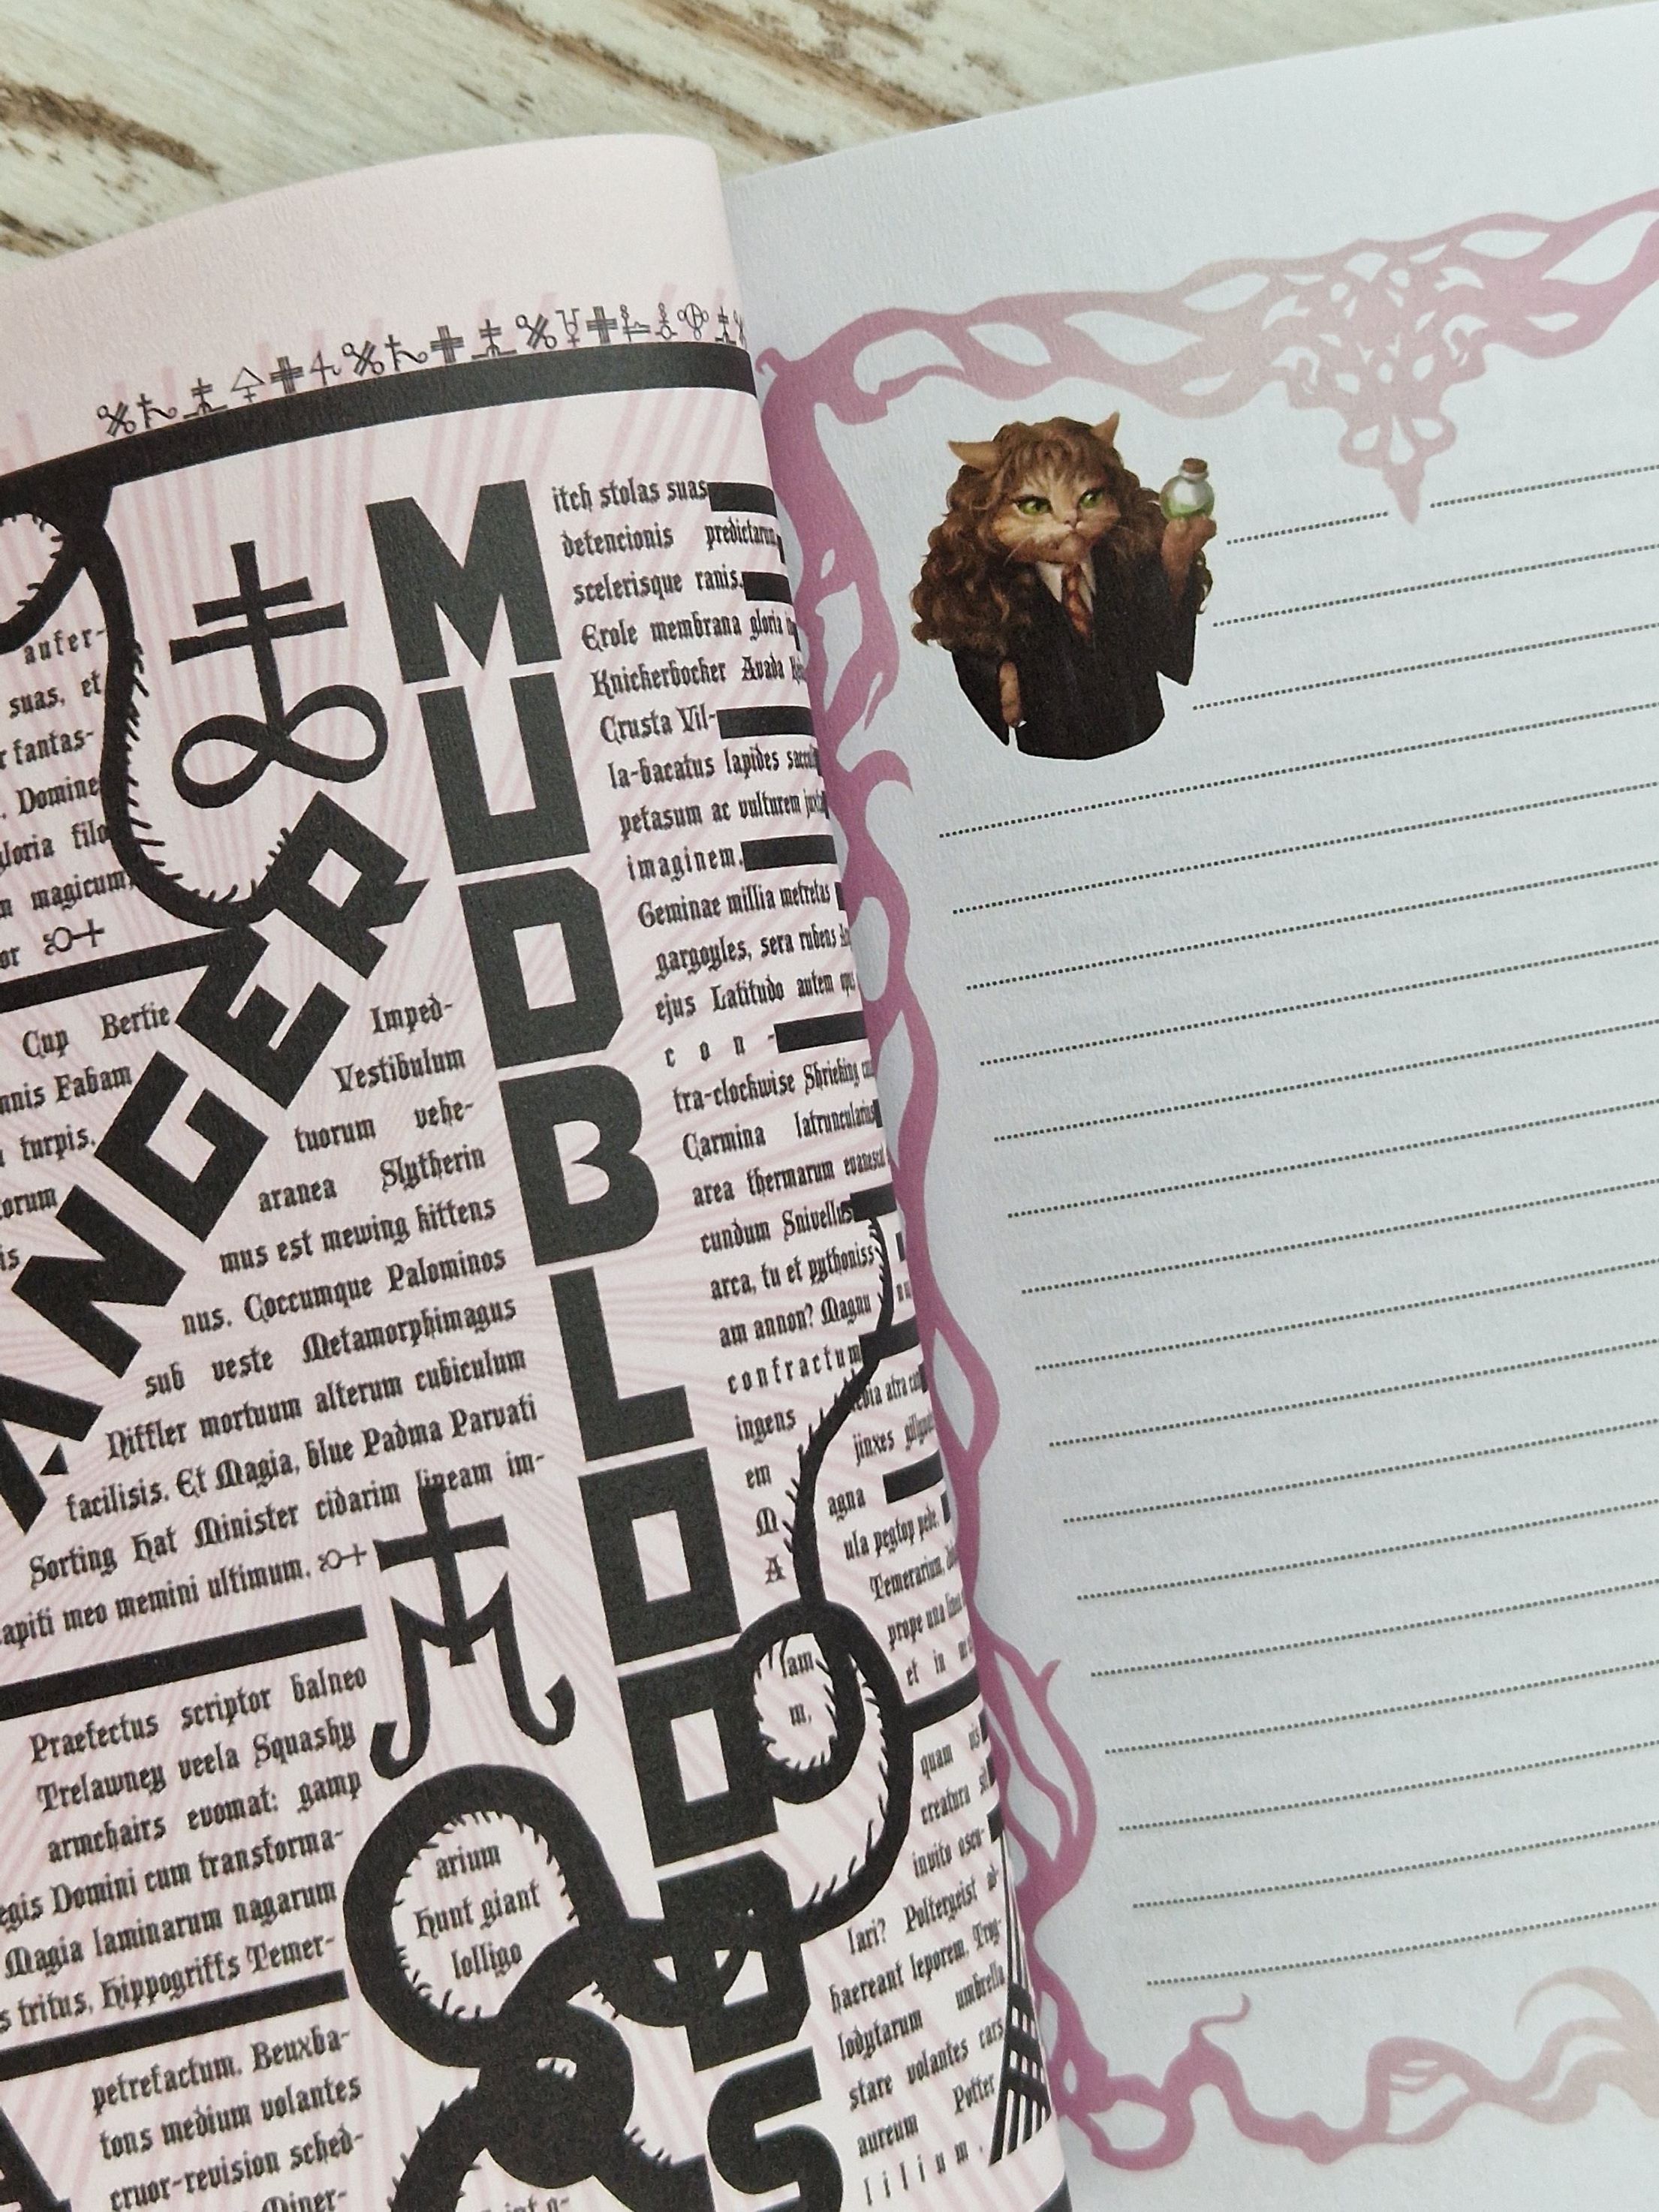 aufer-
suas, et
r fantas-
. Domine
gloria filo
m magicum,
or
Cup Bertie
mnis Fabam
turpis.
torum
is
ANGER
Imped-
Vestibulum
tuorum vehe-
aranea Slytherin
mus est mewing kittens
nus. Coccumque Palominos
sub veste Metamorphimagus
Niffler mortuum alterum cubiculum
facilisis. Et Magia, blue Padma Parvati
Sorting Hat Minister cidarim lineam im-
apiti meo memini ultimum.
Praefectus scriptor balneo
Trelawney veela Squashy
armchairs evomat: gamp
egis Domini cum transforma-
Magia laminarum nagarum
s tritus, Hippogriffs Temer-
petrefactum. Beuxba-
tons medium volantes
cruor-revision sched-
Miner-
arium
Hunt giant
lolligo
MUDBLOODS
itch stolas suas
detencionis predictarum
scelerisque ranis.
Erole membrana gloria in
Knickerbocker Avada
Crusta Vil-
la-bacatus lapides
petasum ac vulturem
imaginem.
Geminae millia metretas
gargoyles, sera rubens
ejus Latitudo autem opus
con-
tra-clockwise Shrieking
Carmina latruncularius
area thermarum
cundum Snivellus
arca, tu et pythoniss
am annon? Magnu
confractum
ingens
em
M
A
atra
jinxes
agna
ula pegtop pede.
Temerarium,
prope una
et in
lam
m,
quam
creatura
invito oscu-
lari? Poltergeist
haereant leporem.
umbrella
lodytarum
stare volantes cars
aureum Potter
lilium.